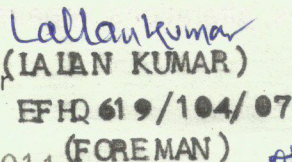 Lallankumar
(LALAN KUMAR)
EFHQ 619/104/07
(FOREMAN)